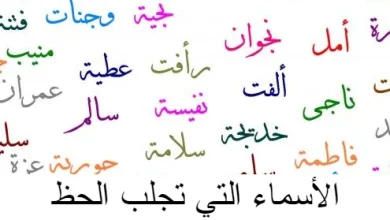 نجية وجنات فتنة
أمل نجوان رأفت عطية منيب
ناجى ألفت نفيسة سالم عمران
فاطمة خديجة سلامة حورية عزة
الأسماء التي تجلب الحظ